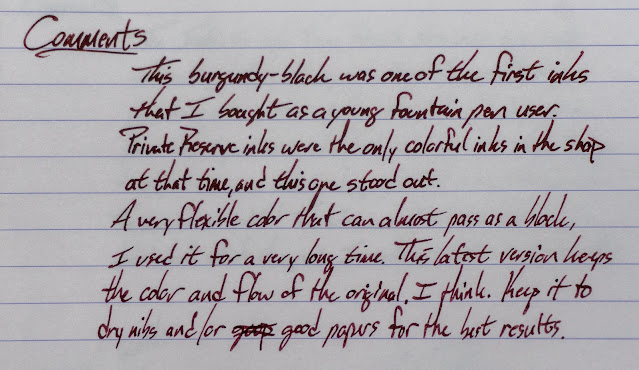 Comments
This burgundy-black was one of the first inks
that I bought as a young fountain pen user.
Private Reserve inks were the only colorful inks in the shop
at that time, and this one stood out.
A very flexible color that can almost pass as a black,
I used it for a very long time. This latest version keeps
the color and flow of the original, I think. Keep it to
dry nibs and/or good papers for the best results.